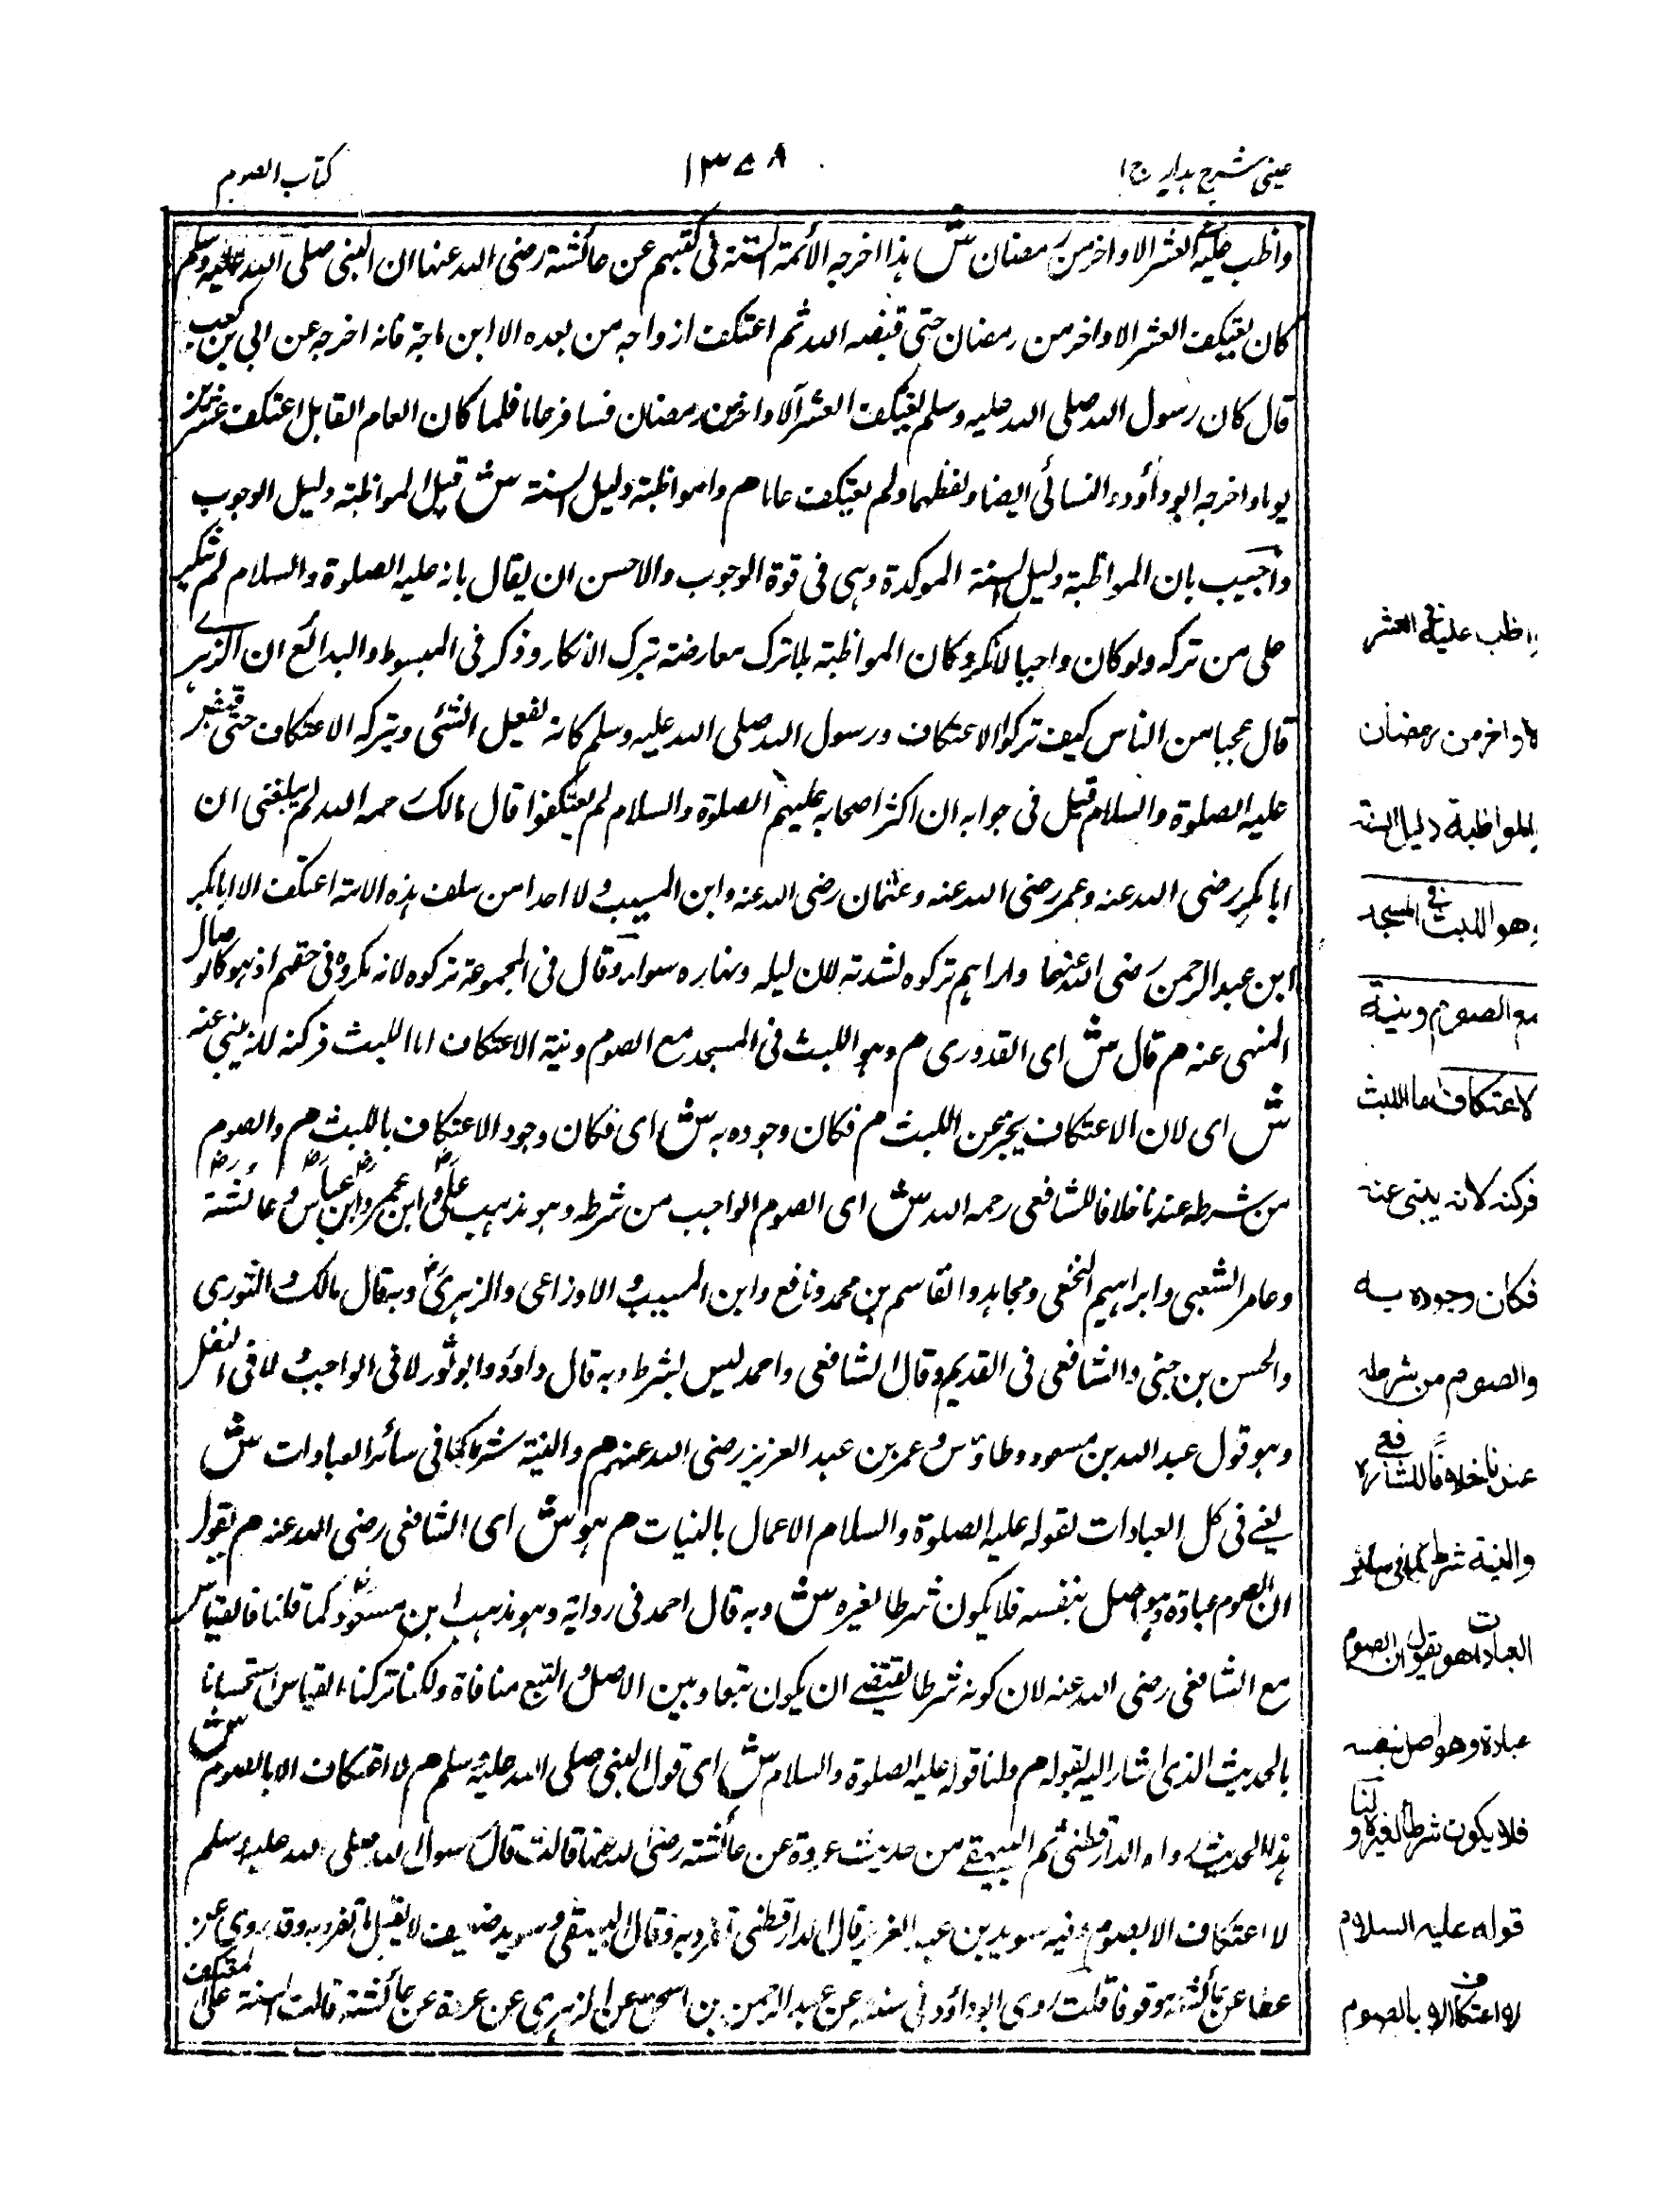 عینی شرح ہدایہ ج ا
١٣٥٨
كتاب الصوم
واظب عليه فى العشر الاواخر من رمضان ش هذا اخرجه الأئمة الستة فى كتبهم عن عائشة رضى الله عنها ان النبى صلى الله عليه وسلم
كان يعتكف العشر الاواخر من رمضان حتى قبضه الله ثم اعتكف ازواجه من بعده الا ابن ماجة فانه اخرجه عن ابى بن كعب
قال كان رسول الله صلى الله عليه وسلم يعتكف العشر الاواخر من رمضان فسافر عاما فلما كان العام القابل اعتكف عشرين
يوما واخرجه ابو داؤد والنسائى ايضا ولفظهما ولم يعتكف عاما م والمواظبة دليل السنة ش قيل المواظبة دليل الوجوب
واجيب بان المواظبة دليل السنة الموكدة وهى فى قوة الوجوب والاحسن ان يقال بانه عليه الصلوة والسلام لم ينكر
على من تركه ولو كان واجبا لانكر وكان المواظبة بلا ترك معارضة بترك الانكار وذكر فى المبسوط والبدائع ان الزهرى
قال عجبا من الناس كيف تركوا الاعتكاف ورسول الله صلى الله عليه وسلم كانه يفعل الشئ ويتركه الاعتكاف حتى قبض
عليه الصلوة والسلام قيل فى جوابه ان اكثر اصحابه عليهم الصلوة والسلام لم يعتكفوا قال مالك رحمه الله لم يبلغنى ان
ابا بكر رضى الله عنه وعمر رضى الله عنه وعثمان رضى الله عنه وابن المسيب ولا احدا من سلف هذه الامة اعتكف الا ابا بكر
ابن عبد الرحمن رضى الله عنهما واراهم تركوه لشدته لان ليله ونهاره سواء وقال فى المجموعة تركوه لانه مكروه فى حقهم اذ هو كالوصال
المنهى عنه م قال ش اى القدورى م وهو اللبث فى المسجد مع الصوم ونية الاعتكاف اما اللبث فركنه لانه ينبى عنه
ش اى لان الاعتكاف يخبر عن اللبث م فكان وجوده به ش اى فكان وجود الاعتكاف باللبث م والصوم
من شرطه عندنا خلافا للشافعى رحمه الله ش اى الصوم الواجب من شرطه وهو مذهب على وابن عمر وابن عباس وعائشة
وعامر الشعبى وابراهيم النخعى ومجاهد والقاسم بن محمد ونافع وابن المسيب والاوزاعى والزهرى وبه قال مالك والثورى
والحسن بن حيى والشافعى فى القديم وقال الشافعى واحمد ليس بشرط وبه قال داؤد وابو ثور لا فى الواجب ولا فى النفل
وهو قول عبد الله بن مسعود وطاؤس وعمر بن عبد العزيز رضى الله عنهم م والنية شرط كما فى سائر العبادات ش
يعنى فى كل العبادات لقوله عليه الصلوة والسلام الاعمال بالنيات م هو ش اى الشافعى رضى الله عنه م يقول
ان الصوم عبادة وهو اصل بنفسه فلا يكون شرطا لغيره ش وبه قال احمد فى رواية وهو مذهب ابن مسعود كما قلنا فالقياس
مع الشافعى رضى الله عنه لان كونه شرطا يقتضى ان يكون تبعا وبين الاصل والتبع منافاة ولكنا تركنا القياس استحسانا
بالحديث الذى اشار اليه بقوله م ولنا قوله عليه الصلوة والسلام ش اى قول النبى صلى الله عليه وسلم م لا اعتكاف الا بالصوم ش
هذا الحديث رواه الدارقطنى ثم البيهقى من حديث عروة عن عائشة رضى الله عنها قالت قال رسول الله صلى الله عليه وسلم
لا اعتكاف الا بصوم وفيه سويد بن عبد العزيز قال الدارقطنى تفرد به وقال البيهقى وسويد ضعيف لا يقبل ما تفرد به وقد روى عن
عطا عن عائشة موقوفا قلت روى ابو داؤد فى سننه عن عبد الرحمن بن اسحق عن الزهرى عن عروة عن عائشة قالت السنة على المعتكف
واظب عليه فى العشر
الاواخر من رمضان
والمواظبة دليل السنة
وهو اللبث فى المسجد
مع الصوم ونية
الاعتكاف اما اللبث
فركنه لانه ينبى عنه
فكان وجوده به
والصوم من شرطه
عندنا خلافا للشافعى ره
والنية شرط كما فى سائر
العبادات هو يقول ان الصوم
عبادة وهو اصل بنفسه
فلا يكون شرطا لغيره ولنا
قوله عليه السلام
لا اعتكاف الا بالصوم